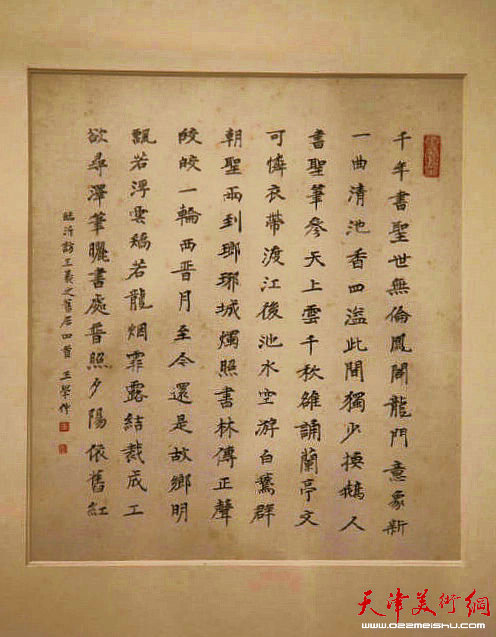 千年書聖世無倫鳳閣龍門意象新
一曲清池香四溢此間獨少換鵝人
書聖筆參天上雲千秋雒誦蘭亭文
可憐衣帶渡江後池水空游白鵞群
朝聖雨到瑯琊城燭照書林傳正聲
皎皎一輪西晉月至今還是故鄉明
飄若浮雲矯若龍烟霏露結裁成工
欲尋澤筆曬書處普照夕陽依舊紅
臨沂訪王羲之舊居四首 王學仲
天津美術網
www.022meishu.com